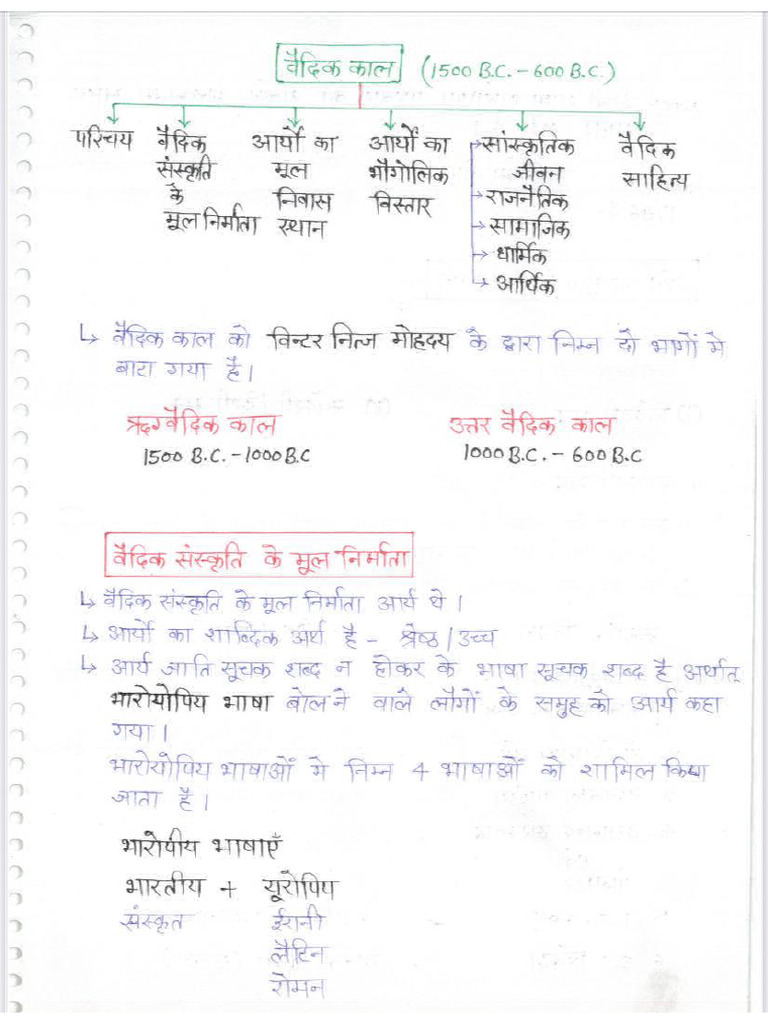 वैदिक काल (1500 B.C. - 600 B.C.)
परिचय
वैदिक
संस्कृति
के
मूल निर्माता
आर्यो का
मूल
निवास
स्थान
आर्यो का
भौगोलिक
विस्तार
सांस्कृतिक
जीवन
राजनैतिक
सामाजिक
धार्मिक
आर्थिक
वैदिक
साहित्य
↳ वैदिक काल को विन्टर नित्ज मोहदय के द्वारा निम्न दो भागों मे
बारा गया है।
ऋग्वैदिक काल
1500 B.C. - 1000 B.C
उत्तर वैदिक काल
1000 B.C. - 600 B.C
वैदिक संस्कृति के मूल निर्माता
↳ वैदिक संस्कृति के मूल निर्माता आर्य थे।
↳ आर्यो का शाब्दिक अर्थ है - श्रेष्ठ / उच्च
↳ आर्य जाति सूचक शब्द न होकर के भाषा सूचक शब्द है अर्थात्
भारोयोपिय भाषा बोलने वाले लौगों के समुह को आर्य कहा
गया।
भारोयोपिय भाषाओं मे निम्न 4 भाषाओं को शामिल किया
जाता है।
भारोपीय भाषाएँ
भारतीय + यूरोपिय
संस्कृत ईरानी
लैटिन
रोमन